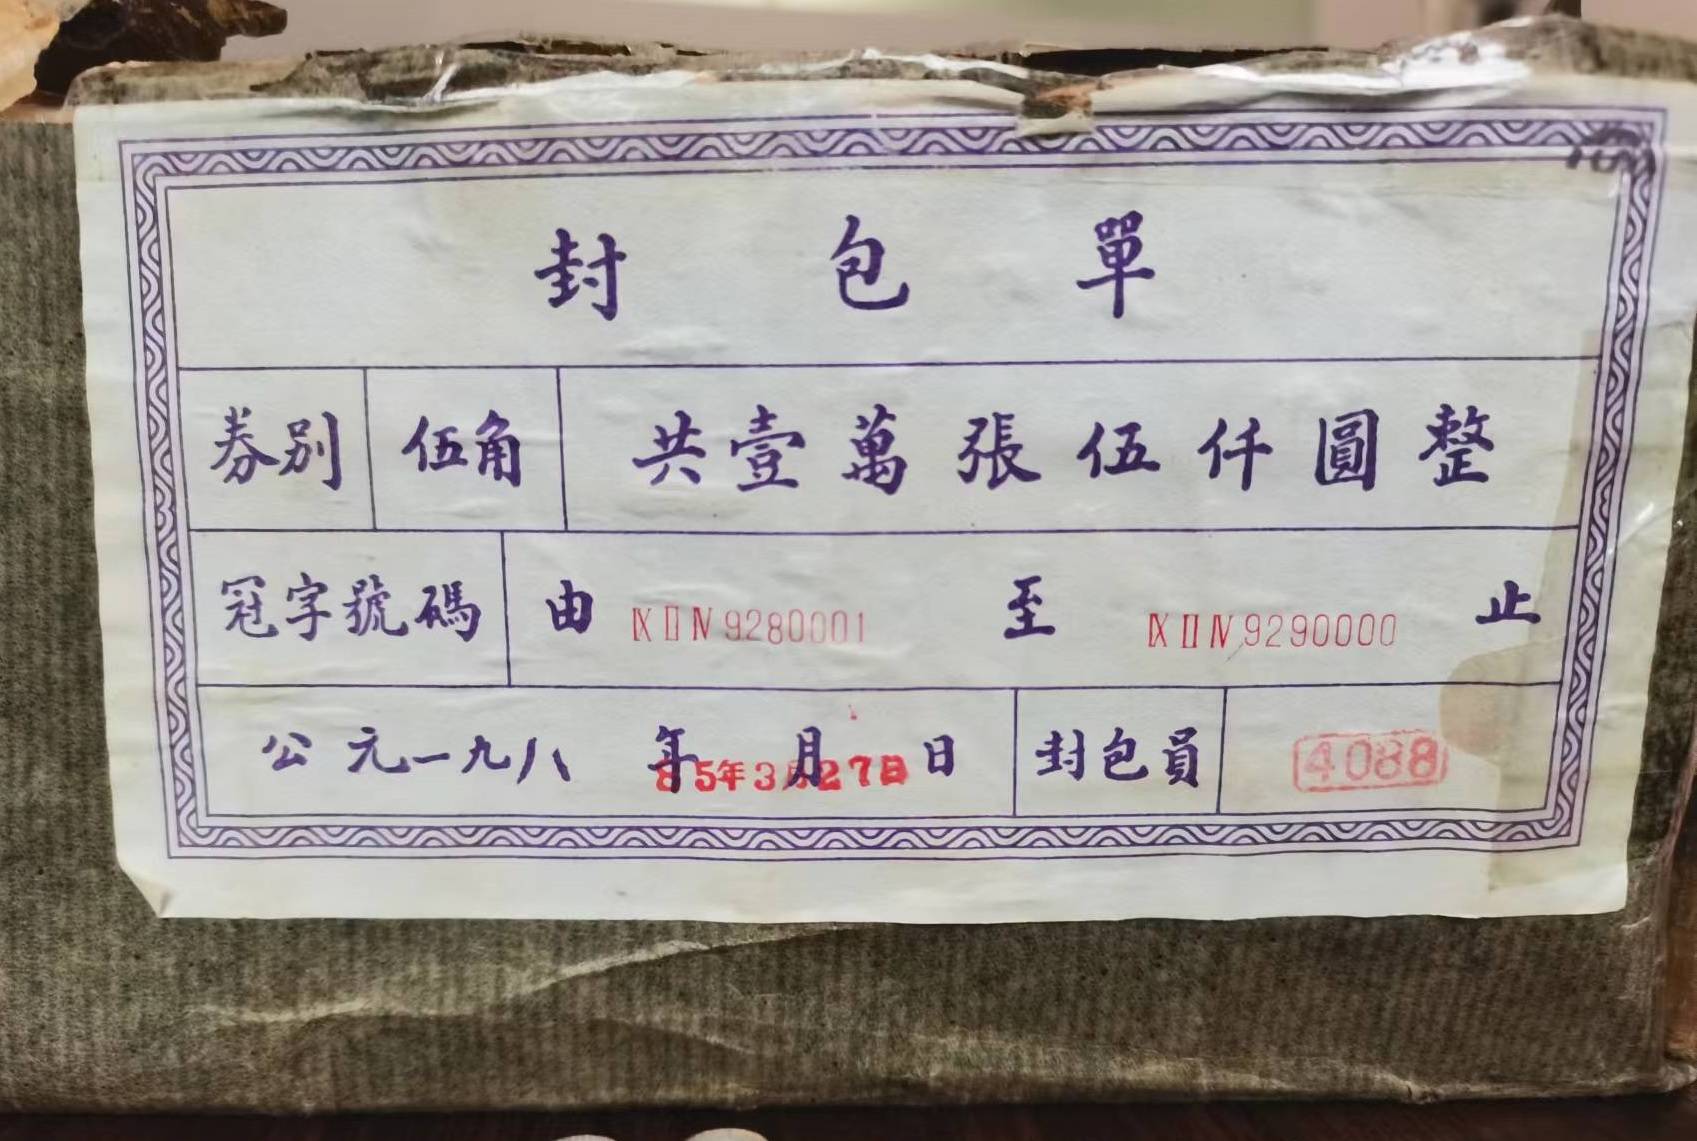 封包單
券别 伍角 共壹萬張伍仟圓整
冠字號碼 由 ⅨⅡⅣ 9280001 至 ⅨⅡⅣ 9290000 止
公元一九八 年 月 日 85年3月27日 封包員 4088